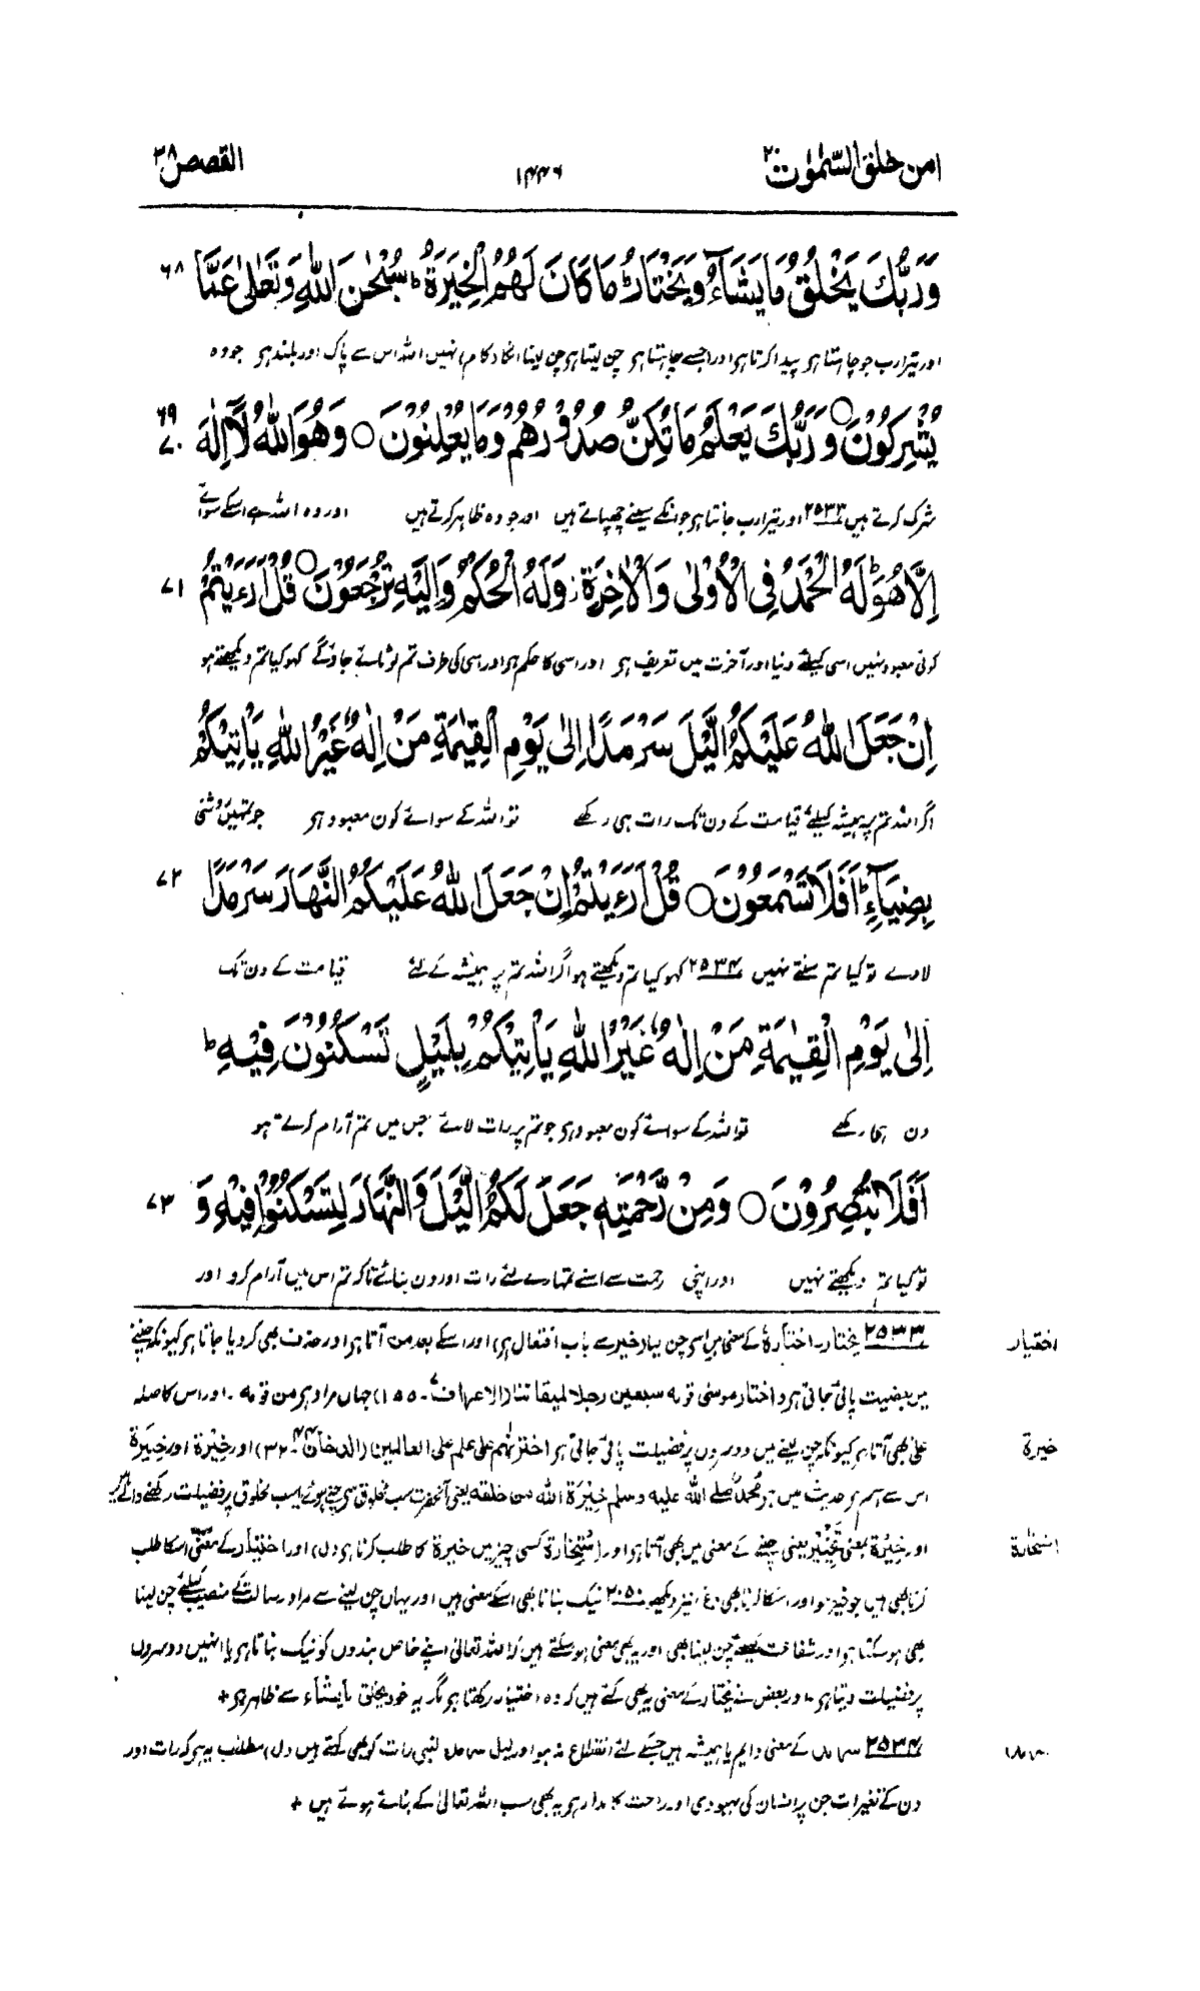 امن خلق السّمٰوٰت ۲۰ ۱۴۴۶ القصص ۲۸
وَرَبُّكَ يَخْلُقُ مَا يَشَآءُ وَيَخْتَارُ ؕ مَا كَانَ لَهُمُ الْخِيَرَةُ ؕ سُبْحٰنَ اللّٰهِ وَتَعٰلٰى عَمَّا ۶۸
اور تیرا رب جو چاہتا ہو پیدا کرتا ہو اور (جسے چاہتا ہو چن لیتا ہو چن لینا انکا (کام) نہیں اللہ اس سے پاک اور بلند ہو جو وہ
يُشْرِكُوْنَ ○ وَرَبُّكَ يَعْلَمُ مَا تُكِنُّ صُدُوْرُهُمْ وَمَا يُعْلِنُوْنَ ○ وَهُوَ اللّٰهُ لَآ اِلٰهَ ۶۹ ۷۰
شرک کرتے ہیں ۲۵۳۳ اور تیرا رب جانتا ہو جو انکے سینے چھپاتے ہیں اور جو وہ ظاہر کرتے ہیں اور وہ اللہ ہے اسکے سوائے
اِلَّا هُوَ ؕ لَهُ الْحَمْدُ فِى الْاُوْلٰى وَالْاٰخِرَةِ ؗ وَلَهُ الْحُكْمُ وَاِلَيْهِ تُرْجَعُوْنَ ○ قُلْ اَرَءَيْتُمْ ۷۱
کوئی معبود نہیں اسی کیلئے دنیا اور آخرت میں تعریف ہو اور اسی کا حکم ہو اور اسی کی طرف تم لوٹائے جاؤگے کہو کیا تم دیکھتے ہو
اِنْ جَعَلَ اللّٰهُ عَلَيْكُمُ الَّيْلَ سَرْمَدًا اِلٰى يَوْمِ الْقِيٰمَةِ مَنْ اِلٰهٌ غَيْرُ اللّٰهِ يَاْتِيْكُمْ
اگر اللہ تم پر ہمیشہ کیلئے قیامت کے دن تک رات ہی رکھے تو اللہ کے سوائے کون معبود ہو جو تمہیں روشنی
بِضِيَآءٍ ؕ اَفَلَا تَسْمَعُوْنَ ○ قُلْ اَرَءَيْتُمْ اِنْ جَعَلَ اللّٰهُ عَلَيْكُمُ النَّهَارَ سَرْمَدًا ۷۲
لا دے تو کیا تم سنتے نہیں ۲۵۳۴ کہو کیا تم دیکھتے ہو اگر اللہ تم پر ہمیشہ کے لئے قیامت کے دن تک
اِلٰى يَوْمِ الْقِيٰمَةِ مَنْ اِلٰهٌ غَيْرُ اللّٰهِ يَاْتِيْكُمْ بِلَيْلٍ تَسْكُنُوْنَ فِيْهِ ؕ
دن ہی رکھے تو اللہ کے سوائے کون معبود ہو جو تم پر رات لائے جس میں تم آرام کرتے ہو
اَفَلَا تُبْصِرُوْنَ ○ وَمِنْ رَّحْمَتِهٖ جَعَلَ لَكُمُ الَّيْلَ وَالنَّهَارَ لِتَسْكُنُوْا فِيْهِ وَ ۷۳
تو کیا تم دیکھتے نہیں اور اپنی رحمت سے اسنے تمہارے لئے رات اور دن بنائے تاکہ تم اس میں آرام کرو اور
اختیار ۲۵۳۳ یختار۔ اختارہٗ کے معنی ہیں اسے چن لیا۔ خیر سے باب افتعال ہو اور اسکے بعد من آتا ہو اور حذف بھی کر دیا جاتا ہو کیونکہ چننے
میں بعضیت پائی جاتی ہو و اختار موسٰی قومہ سبعین رجلا لمیقاتنا (الاعراف ۷۔۱۵۵) جہاں مراد ہو من قومہ۔ اور اس کا صلہ
خیرۃ علیٰ بھی آتا ہو کیونکہ چن لینے میں دوسروں پر فضیلت پائی جاتی ہو اخترنٰہم علی علم علی العالمین (الدخان ۴۴۔۳۲) اور خِیْرۃ اور خِیَرۃ
اس سے اسم ہو حدیث میں ہو محمدٌ صلے اللہ علیہ وسلم خِیَرَۃُ اللہ من خلقہ یعنی آنحضرت سب مخلوق سے چنے ہوئے یا سب مخلوق پر فضیلت رکھنے والے ہیں
استخارۃ اور خِیَرَۃ بمعنی تَخَیُّر یعنی چننے کے معنی میں بھی آتا ہو اور اِسْتِخَارَۃ کسی چیز میں خیرۃ کا طلب کرنا ہو (ل) اور اختیار کے معنی اسکا طلب
کرنا بھی ہیں جو خیر ہو اور اسکا کرنا بھی (غ) نیز دیکھو ۲۰۵۰ نیک بنانا بھی اسکے معنی ہیں اور یہاں چن لینے سے مراد رسالت کے منصب کیلئے چن لینا
بھی ہو سکتا ہو اور شفاعت کیلئے چن لینا بھی اور یہ بھی معنی ہو سکتے ہیں کہ اللہ تعالٰی اپنے خاص بندوں کو نیک بناتا ہو یا انہیں دوسروں
پر فضیلت دیتا ہو۔ اور بعض نے یختار کے معنی یہ بھی کئے ہیں کہ وہ اختیار رکھتا ہو مگر یہ خود یخلق مایشاء سے ظاہر ہو +
۲۵۳۴ سرمد کے معنی دایم یا ہمیشہ ہیں جسکے لئے انقطاع نہ ہو اور لیل سرمد لنبی رات کو بھی کہتے ہیں (ل) مطلب یہ ہو کہ رات اور
دن کے تغیرات جن پر انسان کی بہبودی اور راحت کا مدار ہو یہ بھی سب اللہ تعالٰی کے بنائے ہوئے ہیں +